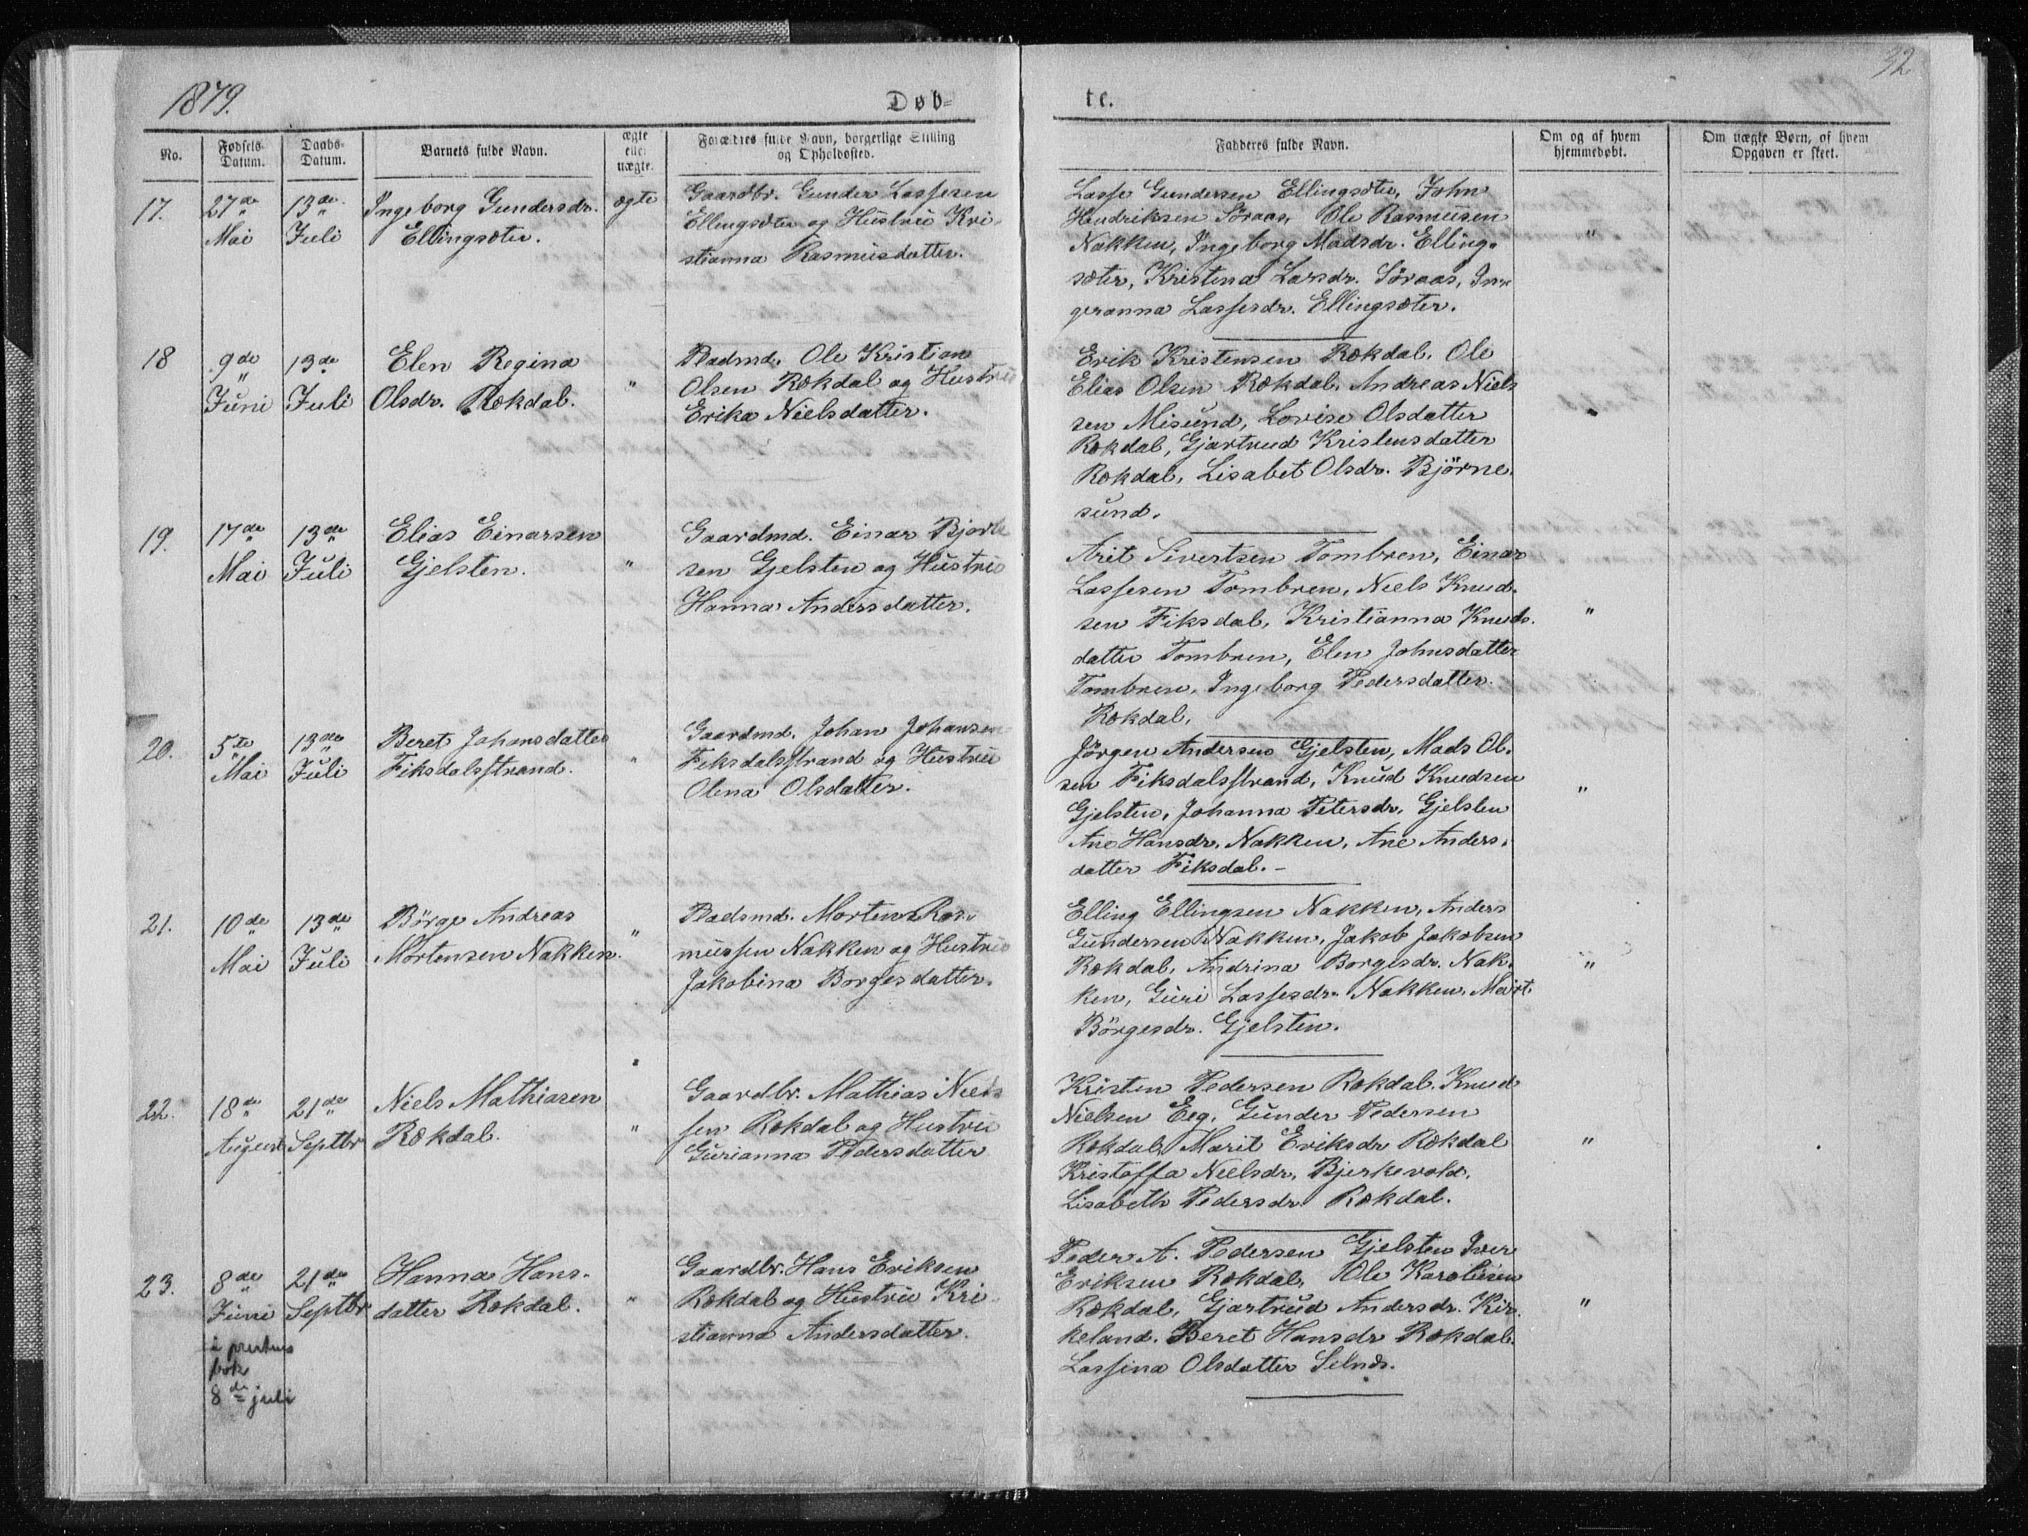 1879.
Døb-
te.
32
No.
Fødsels-
Datum.
Daabs-
Datum.
Barnets fulde Navn.
ægte
eller
uægte.
Forældres fulde Navn, borgerlige Stilling
og Opholdssted.
Fadderes fulde Navn.
Om og af hvem
hjemmedøbt.
Om uægte Børn, af hvem
Opgaven er skeet.
17.
27de
Mai
13de
Juli
Ingeborg Gundersdr.
Ellingsæter.
ægte
Gaardbr. Gunder Lassesen
Ellingsæter og Hustru Kri-
stianna Rasmusdatter.
Lasse Gundersen Ellingsæter, John
Hendriksen Søraas, Ole Rasmussen
Nakken, Ingeborg Madsdr. Elling-
sæter, Kristina Larsdr. Søraas, In-
geranna Lassesdr. Ellingsæter.
"
18
9de
Juni
13de
Juli
Elen Regina
Olsdr. Rekdal.
"
Pladsmd. Ole Kristian
Olsen Rekdal og Hustru
Erika Nielsdatter.
Erik Kristensen Rekdal, Ole
Elias Olsen Rekdal, Andreas Niel-
sen Misund, Lovise Olsdatter
Rekdal, Gjartrud Kristensdatter
Rekdal, Lisabet Olsdr. Bjørne-
sund.
"
19.
17de
Mai
13de
Juli
Elias Einarsen
Gjelsten.
"
Gaardmd. Einar
sen Gjelsten og Hustru
Hanna Andersdatter.
Arit Sivertsen Tombren, Einar
Lassesen Tombren, Niels Knud-
sen Fiksdal, Kristianna Knuds-
datter Tombren, Elen Johnsdatter
Tombren, Ingeborg Pedersdatter
Rekdal.
"
20.
5te
Mai
13de
Juli
Beret Johansdatter
Fiksdalsstrand.
"
Gaardmd. Johan Johansen
Fiksdalsstrand og Hustru
Olena Olsdatter.
Jørgen Andersen Gjelsten, Mads Ol-
sen Fiksdalsstrand, Knud Knudsen
Gjelsten, Johanna Petersdr. Gjelsten
Ane Hansdr. Nakken, Ane Anders-
datter Fiksdal. -
"
21.
10de
Mai
13de
Juli
Børge Andreas
Mortensen Nakken.
"
Pladsmd. Morten Ras-
mussen Nakken og Hustru
Jakobina Borgesdatter.
Elling Ellingsen Nakken, Anders
Gundersen Nakken, Jakob Jakobsen
Rekdal, Andrina Borgesdr. Nak-
ken, Guri Lassesdr. Nakken, Marit
Børgesdr. Gjelsten.
"
22.
18de
August
21de
Septbr
Niels Mathiasen
Rekdal.
"
Gaardbr. Mathias Niel-
sen Rekdal og Hustru
Gurianna Pedersdatter
Kristen Pedersen Rekdal, Knud
Nielsen Eeg, Gunder Pedersen
Rekdal, Marit Eriksdr Rekdal
Kristoffa Nielsdr. Bjerkevold,
Lisabeth Pedersdr Rekdal.
"
23.
8de
Juni
i prestens
bok
8de juli
21de
Septbr
Hanna Hans-
datter Rekdal.
"
Gaardbr. Hans Eriksen
Rekdal og Hustru Kri-
stianna Andersdatter.
Peder A. Pedersen Gjelsten Iver
Eriksen Rekdal, Ole Karolusen
Rekdal, Gjartrud Andersdr. Kir-
keland, Beret Hansdr Rekdal
Lassina Olsdatter Selnæs.
"